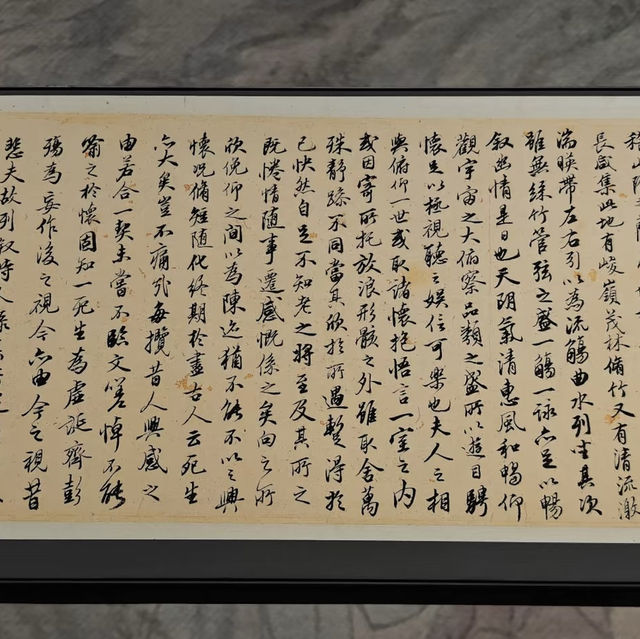 長咸集此地有峻嶺茂林脩竹又有清流激
湍暎帶左右引以為流觴曲水列坐其次
雖無絲竹管弦之盛一觴一詠亦足以暢
叙幽情是日也天朗氣清惠風和暢仰
觀宇宙之大俯察品類之盛所以遊目騁
懷足以極視聽之娛信可樂也夫人之相
與俯仰一世或取諸懷抱悟言一室之內
或因寄所托放浪形骸之外雖取舍萬
殊靜躁不同當其欣於所遇蹔得於
己快然自足不知老之將至及其所之
既惓情隨事遷感慨係之矣向之所
欣俛仰之間以為陳迹猶不能不以之興
懷況脩短隨化終期於盡古人云死生
亦大矣豈不痛哉每攬昔人興感之
由若合一契未嘗不臨文嗟悼不能
喻之於懷固知一死生為虛誕齊彭
殤為妄作後之視今亦由今之視昔
悲夫故列叙時人